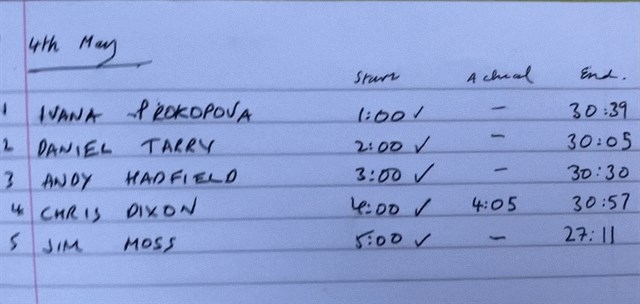 4th May
Start Actual End.
1 IVANA PROKOPOVA 1:00 ✓ – 30:39
2 DANIEL TARRY 2:00 ✓ – 30:05
3 ANDY HADFIELD 3:00 ✓ – 30:30
4 CHRIS DIXON 4:00 ✓ 4:05 30:57
5 JIM MOSS 5:00 ✓ – 27:11